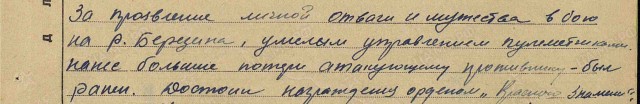 За проявление личной отваги и мужества в бою
на р. Березина, умелым управлением пулеметчиками.
нанес большие потери атакующему противнику - был
ранен. Достоин награждения орденом "Красного Знамени"